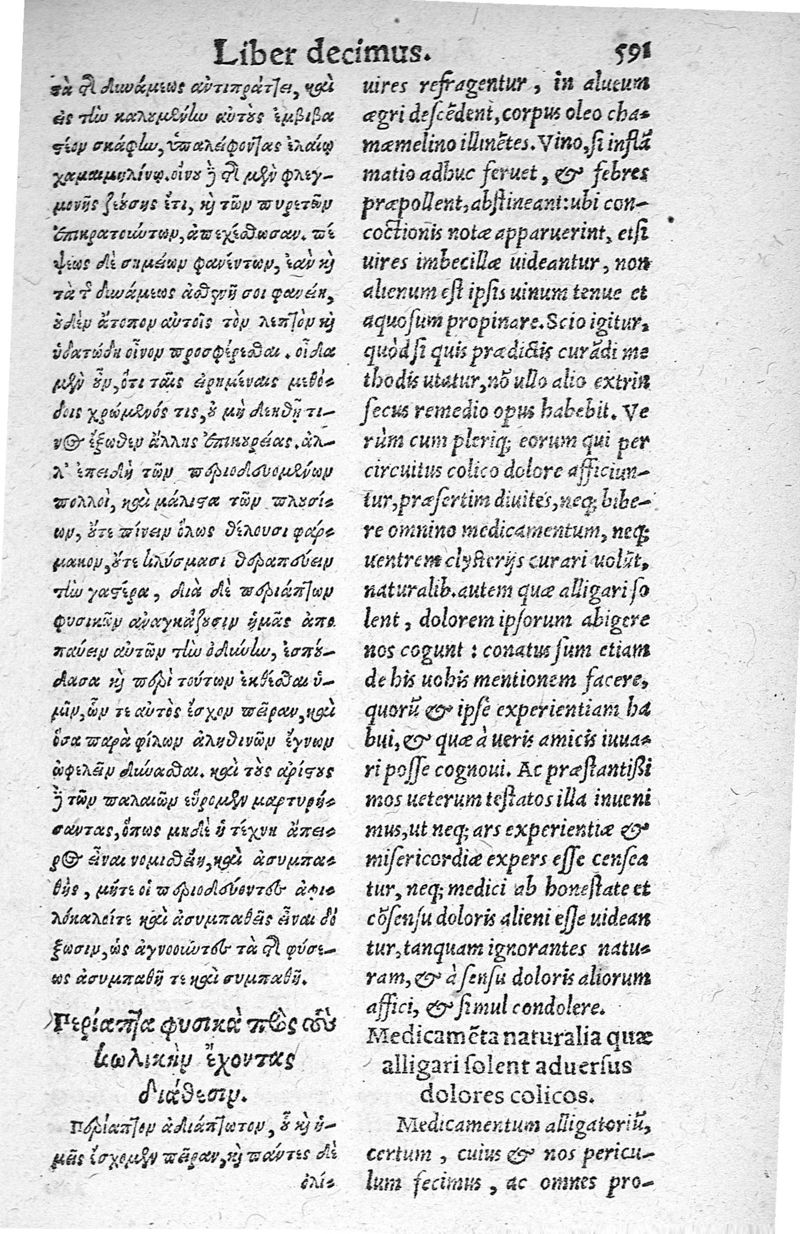 Liber decimus. 591
τὰ τῆς δυνάμεως ἀντιπράττει, καὶ
εἰς τὴν καλουμένην αὐτοὺς ἐμβιβα
στέον σκάφην, ὑπαλείφοντας ἐλαίῳ
χαμαιμηλίνῳ. οἴνου δὲ τῆς μὲν φλεγ-
μονῆς ζεούσης ἔτι, κὴ τῶν πυρετῶν
ἐπικρατούντων, ἀπεχέσθωσαν. πέ
ψεως δὲ σημείων φανέντων, ἐὰν κὴ
τὰ τῆς δυνάμεως ἀσθενῆ σοι φανείη,
οὐδὲν ἄτοπον αὐτοῖς τὸν λεπτὸν κὴ
ὑδατώδη οἶνον προσφέρεσθαι. οἶδα
μὲν οὖν, ὅτι ταῖς εἰρημέναις μεθό-
δοις χρώμενός τις, οὐ μὴ δεηθῇ τι-
νος ἔξωθεν ἄλλης ἐπικουρίας. ἀλ-
λ' ἐπειδὴ τῶν περιοδευομένων
πολλοὶ, καὶ μάλιστα τῶν πλουσί-
ων, οὔτε πίνειν ὅλως θέλουσι φάρ-
μακον, οὔτε κλύσμασι θεραπεύειν
τὴν γαστέρα, διὰ δὲ περιάπτων
φυσικῶν ἀναγκάζουσιν ἡμᾶς ἀπο
παύειν αὐτῶν τὴν ὀδύνην, ἐσπού-
δασα κὴ περὶ τούτων ἐκθέσθαι ὑ-
μῖν, ὧν τε αὐτὸς ἔσχον πεῖραν, καὶ
ὅσα παρὰ φίλων ἀληθινῶν ἔγνων
ὠφελεῖν δύνασθαι. καὶ τοὺς ἀρίστους
δὲ τῶν παλαιῶν εὕρομεν μαρτυρή-
σαντας, ὅπως μηδὲ ἡ τέχνη ἄπει-
ρος εἶναι νομισθείη, καὶ ἀσυμπα-
θὴς, μήτε οἱ περιοδεύοντες ἀφι-
λόκαλοίτε καὶ ἀσυμπαθεῖς εἶναι δό
ξωσιν, ὡς ἀγνοοῦντες τὰ τῆς φύσε-
ως ἀσυμπαθῆ τε καὶ συμπαθῆ.
Περίαπτα φυσικὰ πρὸς τοὺς
κωλικὴν ἔχοντας
διάθεσιν.
Περίαπτον ἀδιάπτωτον, οὗ κὴ ἡ-
μεῖς ἔσχομεν πεῖραν, κὴ πάντες δὲ
ὀλί-
uires refragentur, in alueum
ægri descẽdent, corpus oleo cha-
mæmelino illinẽtes. Vino, si inflã
matio adhuc feruet, & febres
præpollent, abstineant: ubi con-
coctionis notæ apparuerint, etsi
uires imbecillæ uideantur, non
alienum est ipsis uinum tenue et
aquosum propinare. Scio igitur,
quòd si quis prædictis curãdi me
thodis utatur, nõ ullo alio extrin
secus remedio opus habebit. Ve
rùm cum pleriq; eorum qui per
circuitus colico dolore afficiun-
tur, præsertim diuites, neq; bibe-
re omnino medicamentum, neq;
uentrem clysterijs curari uolũt,
naturalib. autem quæ alligari so
lent, dolorem ipsorum abigere
nos cogunt: conatus sum etiam
de his uobis mentionem facere,
quorũ & ipse experientiam ha
bui, & quæ à ueris amicis iuua-
ri posse cognoui. Ac præstantißi
mos ueterum testatos illa inueni
mus, ut neq; ars experientiæ &
misericordiæ expers esse censea
tur, neq; medici ab honestate et
cõsensu doloris alieni esse uidean
tur, tanquam ignorantes natu-
ram, & à sensu doloris aliorum
affici, & simul condolere.
Medicamẽta naturalia quæ
alligari solent aduersus
dolores colicos.
Medicamentum alligatoriũ,
certum, cuius & nos pericu-
lum fecimus, ac omnes pro-